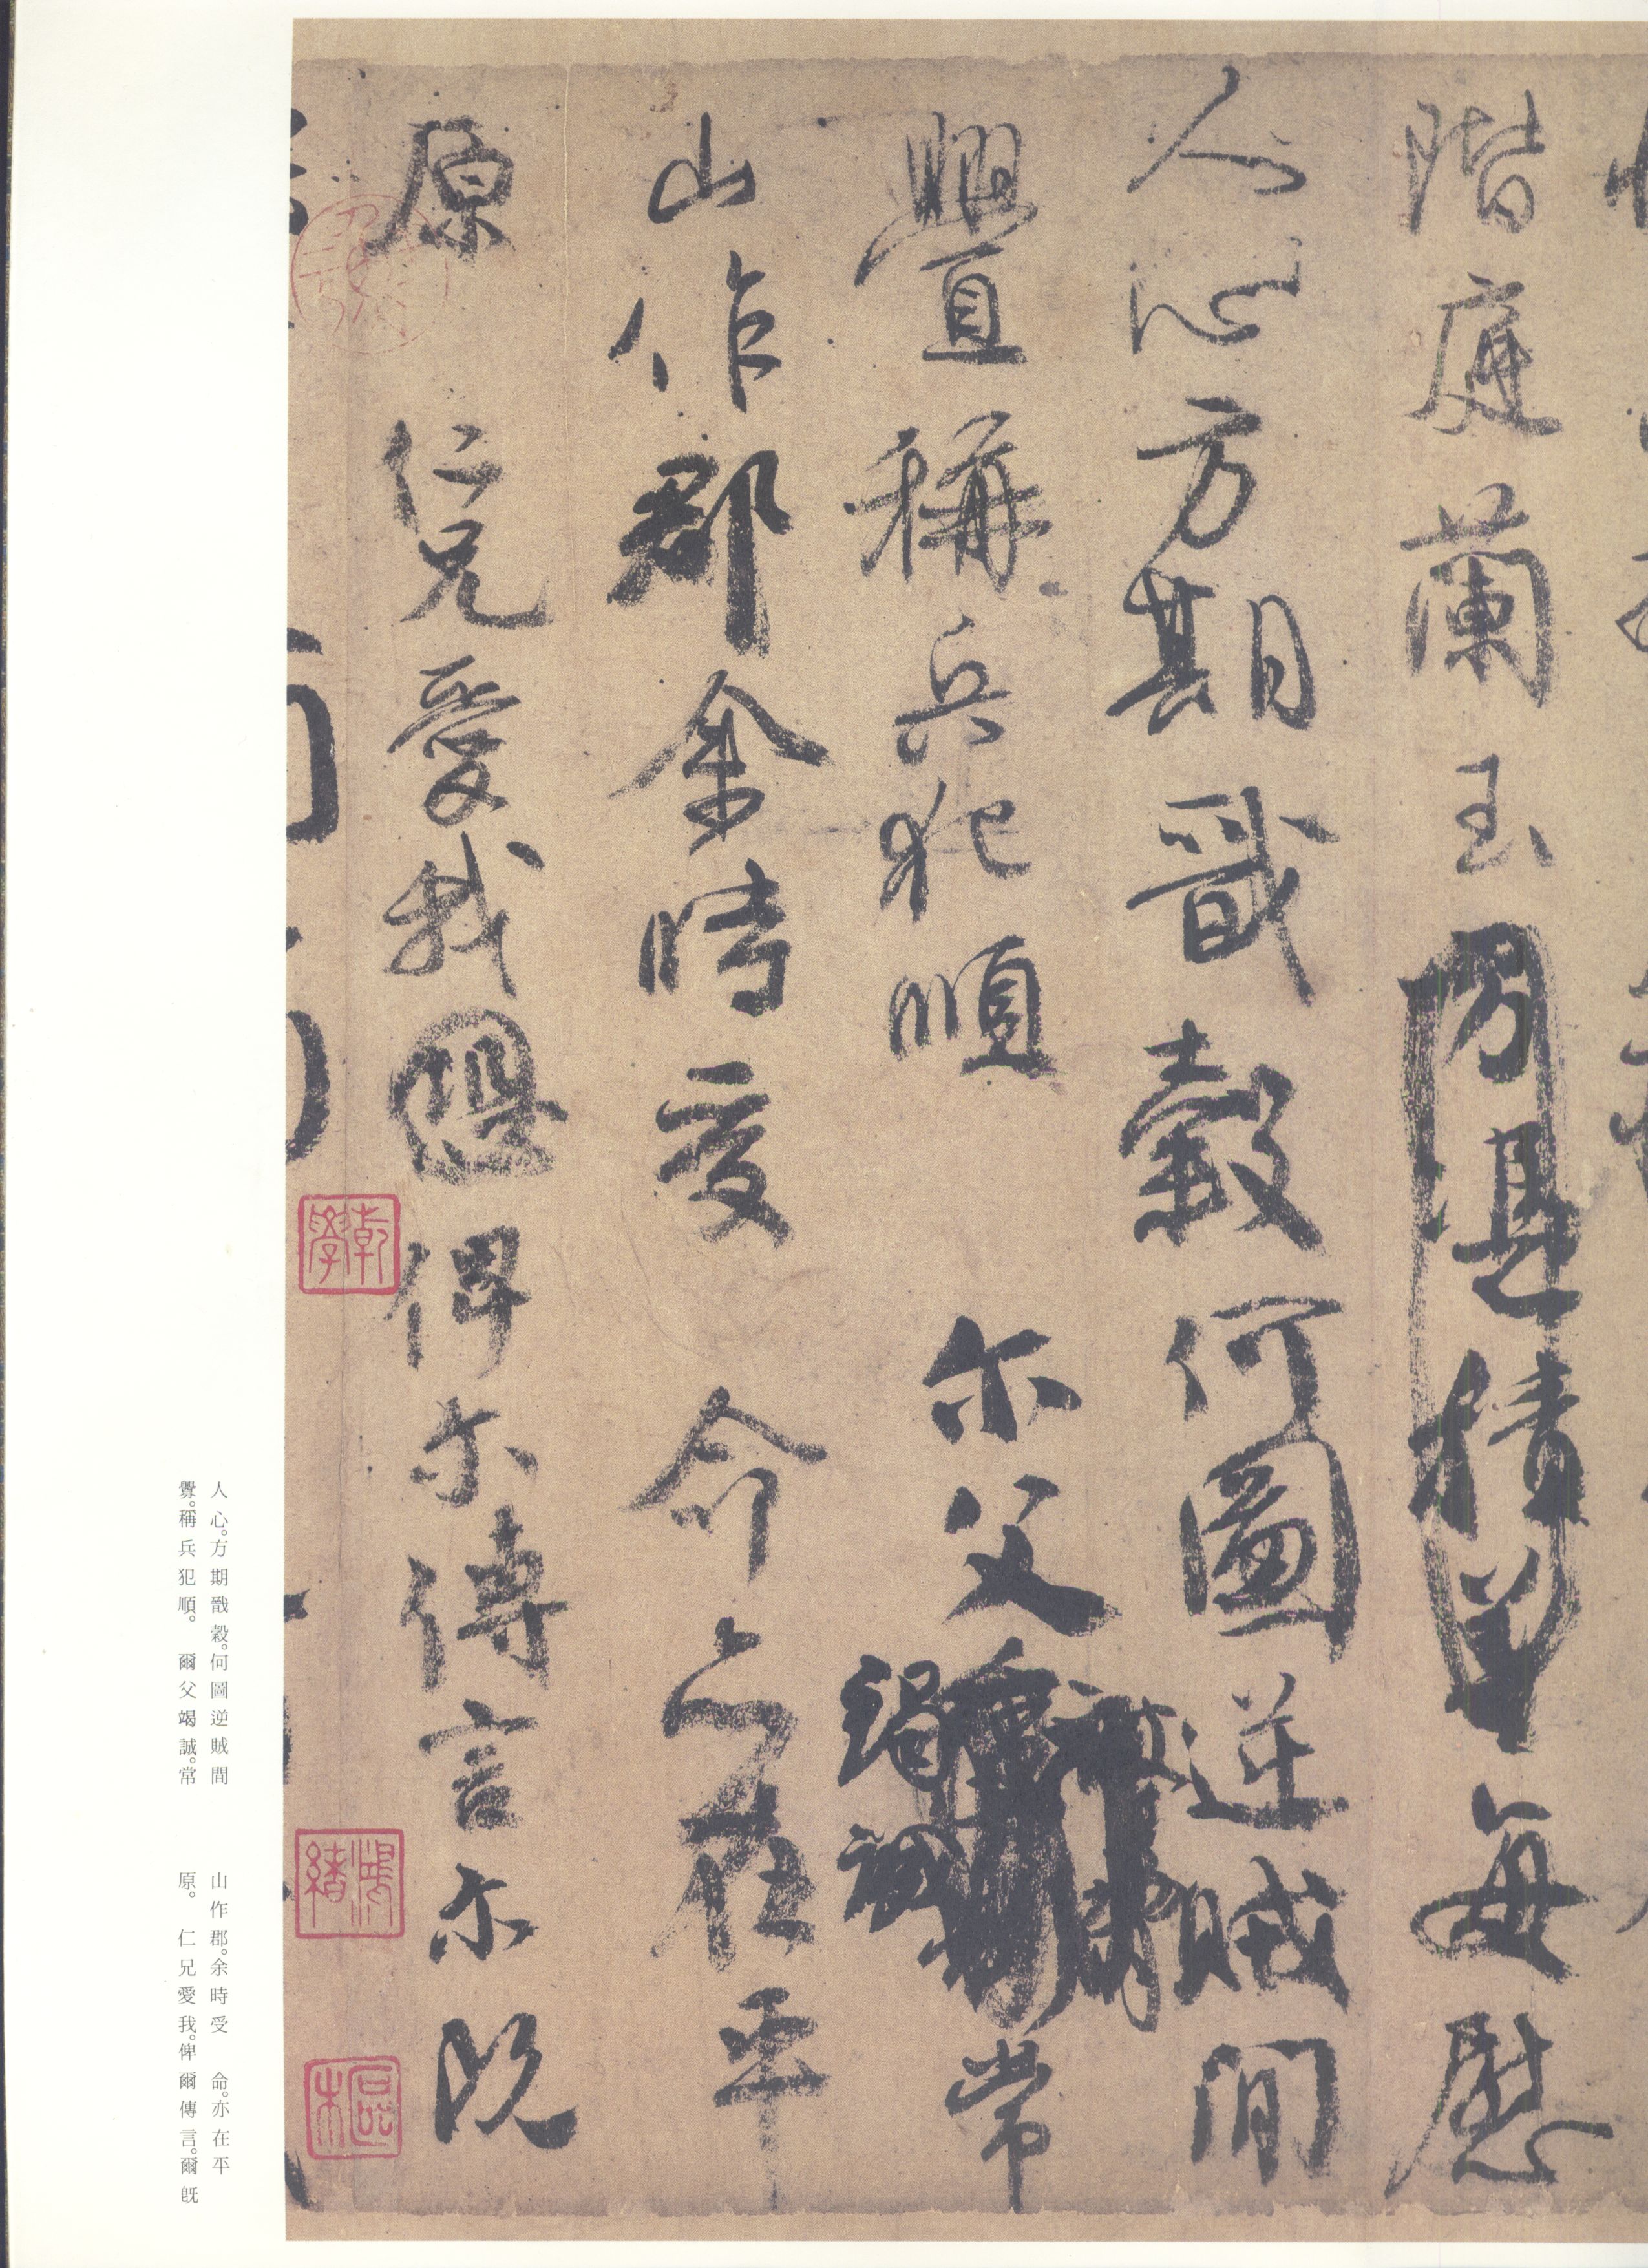 階庭蘭玉每慰
人心方期戩穀何圖逆賊間
舋稱兵犯順尒父常
山作郡余時受命亦在平
原仁兄愛我俾尒傳言尒既
人心。方期戩穀。何圖逆賊間
釁。稱兵犯順。爾父竭誠。常
山作郡。余時受命。亦在平
原。仁兄愛我。俾爾傳言。爾既